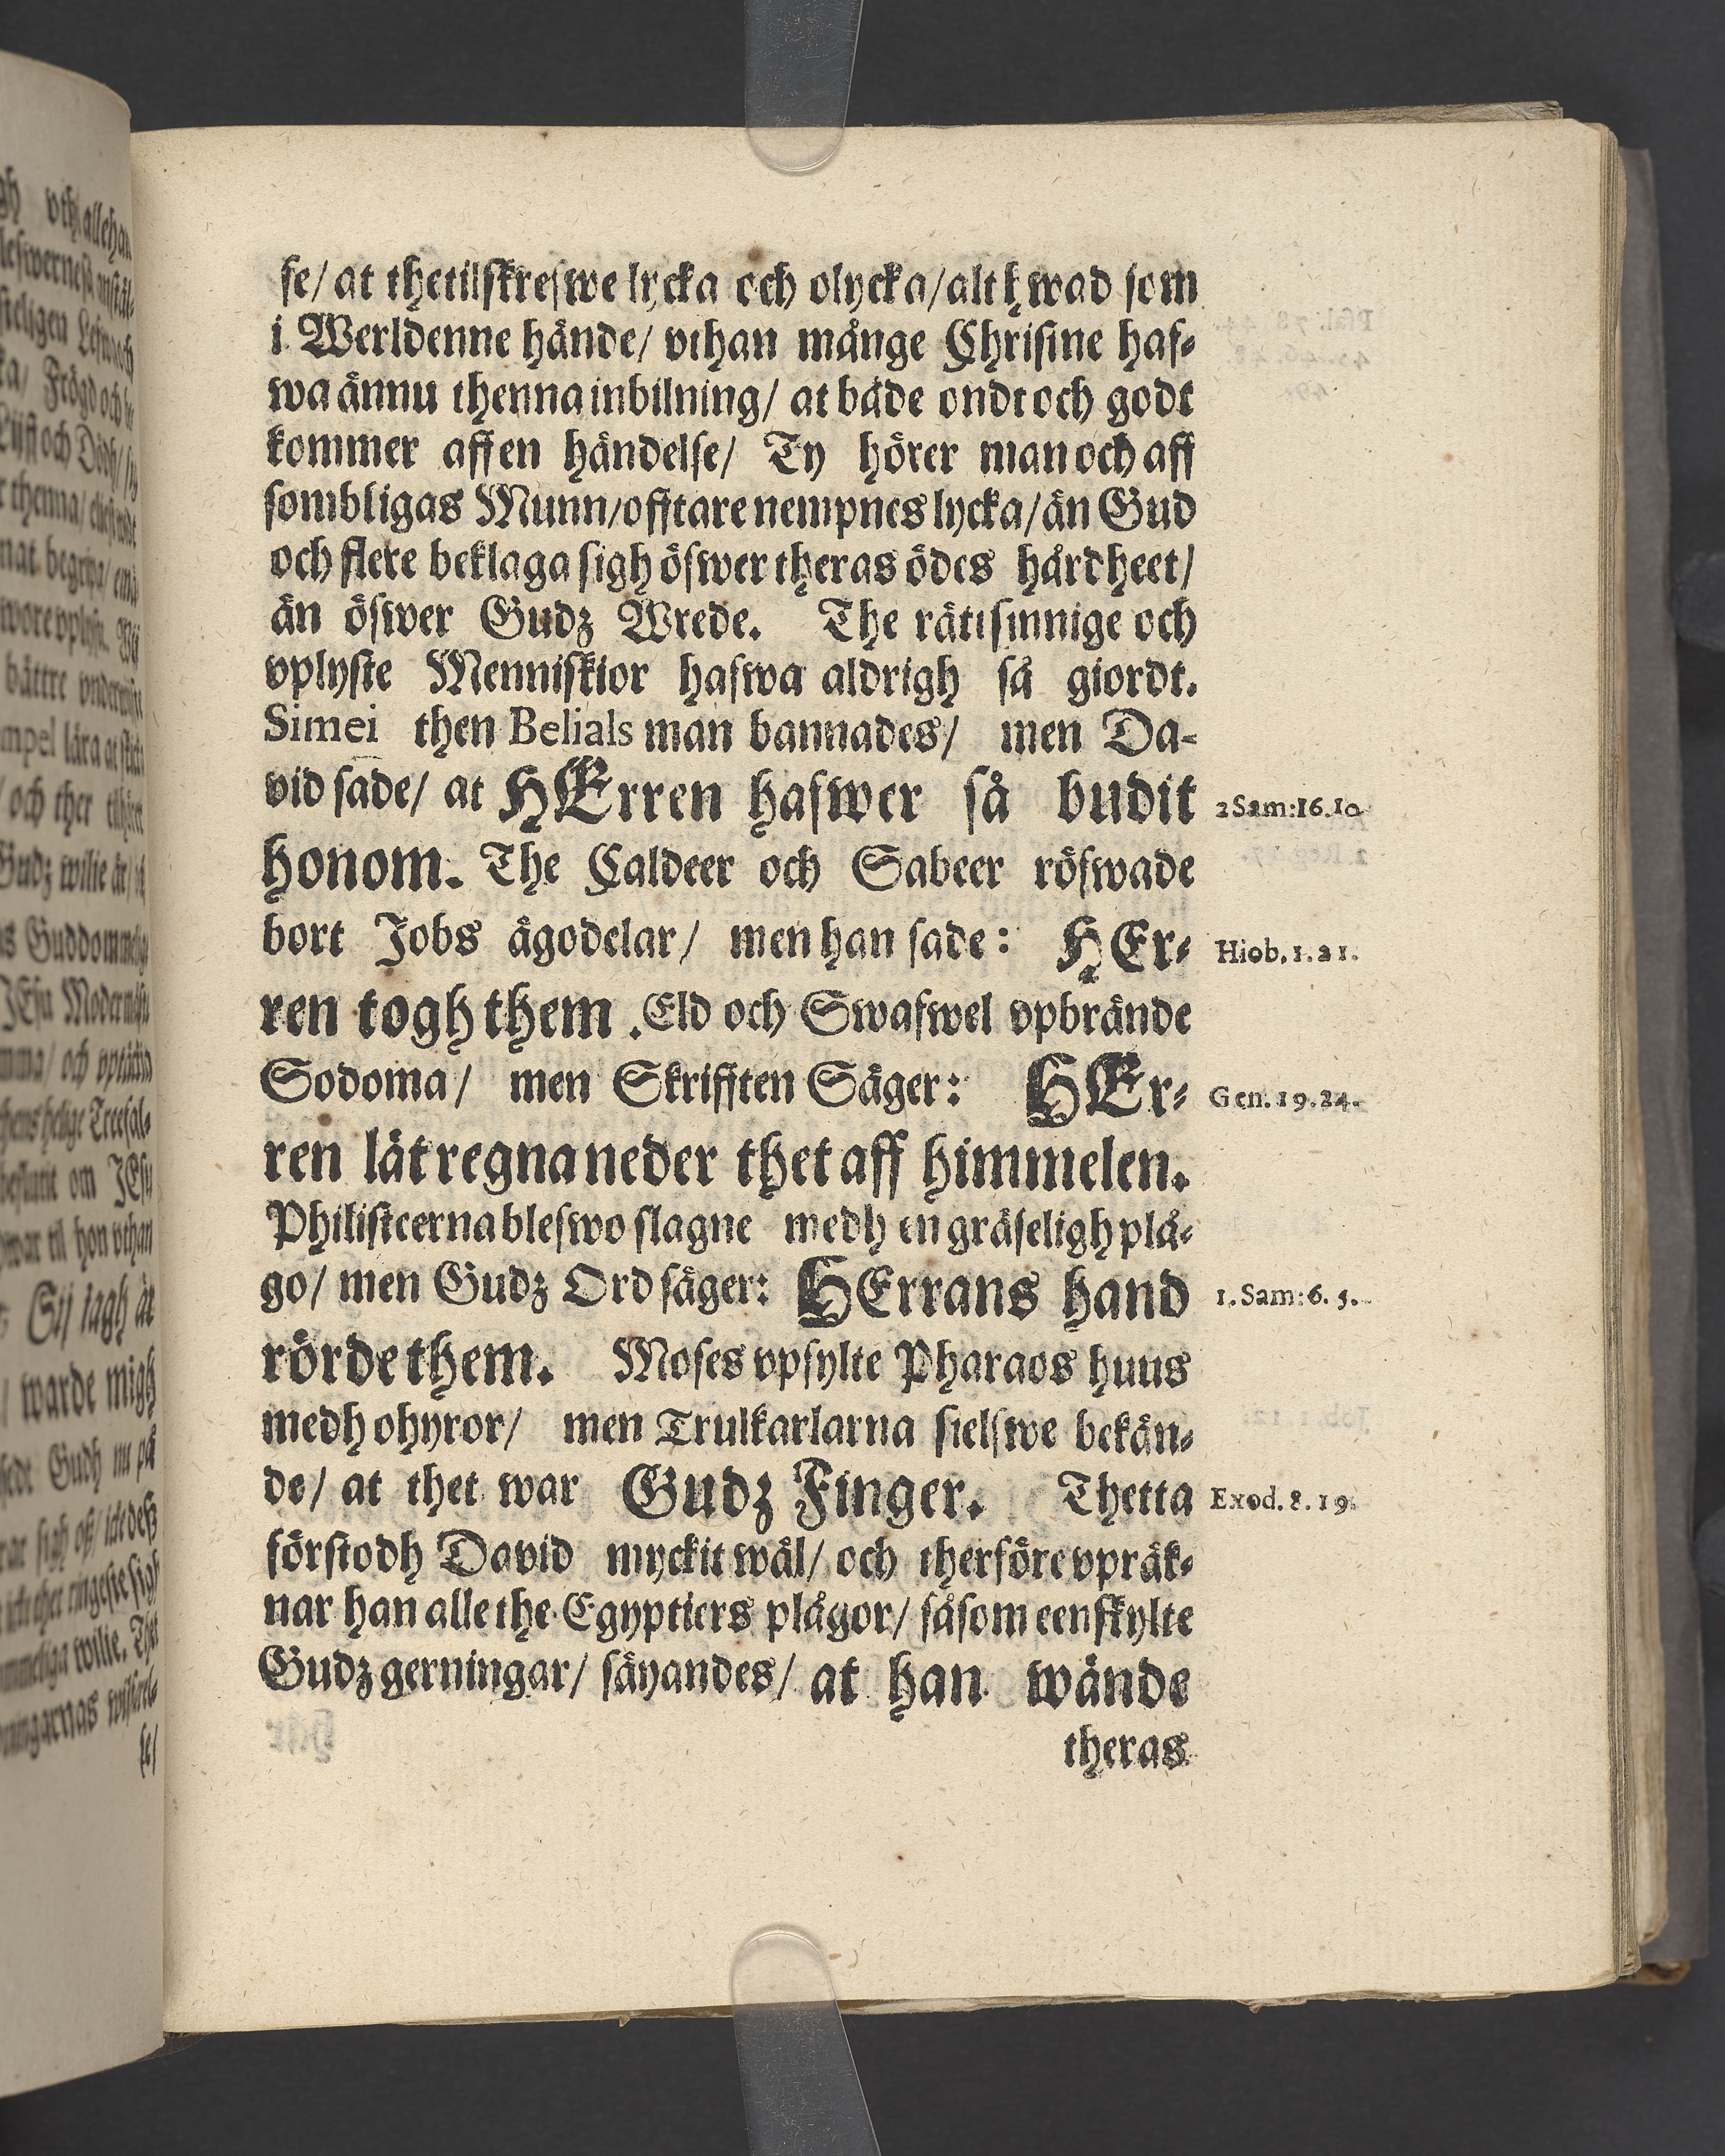 se/ at thetilskrefwe lycka och olycka/alt hwad som
i Werldenne hände/ vthan månge Christne haf-
wa ännu thenna inbilning/ at både ondt och godt
kommer aff en händelse/ Ty hörer man och aff
sombligas Munn/offtare nempnes lycka/än Gud
och flere beklaga sigh öfwer theras ödes hårdheet/
än öfwer Gudz Wrede. The rättsinnige och
vplyste Menniskior hafwa aldrigh så giordt.
Simei then Belials man bannades/ men Da-
vid sade/ at HErren hafwer så budit
2 Sam: 16. 10.
honom. The Caldeer och Sabeer röfwade
bort Jobs ägodelar/ men han sade: HEr-
Hiob. 1. 21.
ren togh them. Eld och Swafwel vpbrände
Sodoma/ men Skrifften Säger: HEr-
Gen. 19. 24.
ren lät regna neder thet aff himmelen.
Philisteerna blefwo slagne medh en gräseligh plå-
go/ men Gudz Ord säger: HErrans hand
1. Sam: 6. 5.
rörde them. Moses vpfylte Pharaos huus
medh ohyror/ men Trulkarlarna sielfwe bekän-
de/ at thet war Gudz Finger. Thetta
Exod. 8. 19.
förstodh David myckit wäl/ och therföre vpräk-
nar han alle the Egyptiers plågor/ såsom eenskylte
Gudz gerningar/ säyandes/ at han wände
theras